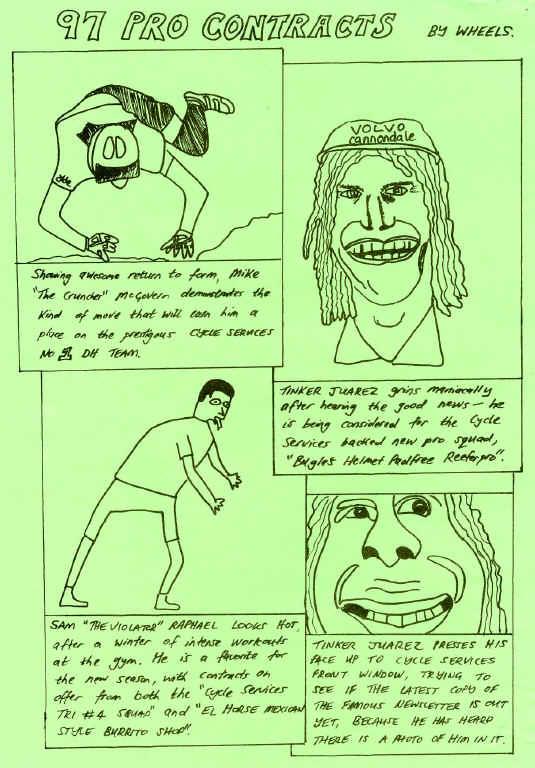 97 PRO CONTRACTS
BY WHEELS.
Showing awesome return to form, Mike
"The Cruncher" McGovern demonstrates the
kind of move that will earn him a
place on the prestigous CYCLE SERVICES
No 1 DH TEAM.
VOLVO
cannondale
TINKER JUAREZ grins maniacally
after hearing the good news - he
is being considered for the Cycle
Services backed new pro squad,
Helmet Reefer pro".
SAM "THE VIOLATOR" RAPHAEL LOOKS HOT,
after a winter of intense workouts
at the gym. He is a favorite for
the new season, with contracts on
offer from both the "Cycle Services
TRI #4 SQUAD" and "EL HORSE MEXICAN
STYLE BURRITO SHOP".
TINKER JUAREZ PRESSES HIS
FACE UP TO CYCLE SERVICES
FRONT WINDOW, TRYING TO
SEE IF THE LATEST COPY OF
THE FAMOUS NEWSLETTER IS OUT
YET, BECAUSE HE HAS HEARD
THERE IS A PHOTO OF HIM IN IT.